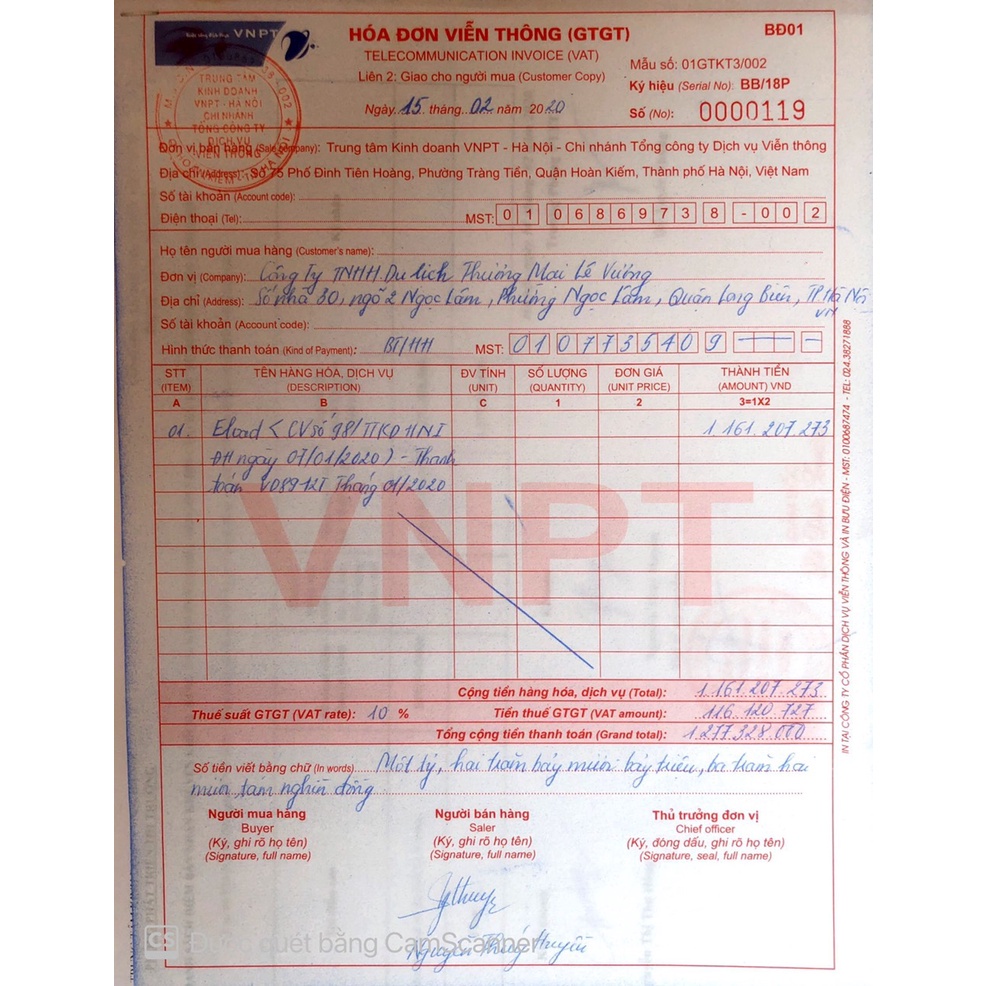 VNPT
HÓA ĐƠN VIỄN THÔNG (GTGT)
BĐ01
TELECOMMUNICATION INVOICE (VAT)
Mẫu số: 01GTKT3/002
Liên 2: Giao cho người mua (Customer Copy)
Ký hiệu (Serial No): BB/18P
Ngày 15 tháng 02 năm 2020
Số (No): 0000119
TRUNG TÂM
KINH DOANH
VNPT - HÀ NỘI
CHI NHÁNH
TỔNG CÔNG TY
DỊCH VỤ
VIỄN THÔNG
Đơn vị bán hàng (Sale company): Trung tâm Kinh doanh VNPT - Hà Nội - Chi nhánh Tổng công ty Dịch vụ Viễn thông
Địa chỉ (Address): Số 75 Phố Đinh Tiên Hoàng, Phường Tràng Tiền, Quận Hoàn Kiếm, Thành phố Hà Nội, Việt Nam
Số tài khoản (Account code):
Điện thoại (Tel): MST: 0 1 0 6 8 6 9 7 3 8 - 0 0 2
Họ tên người mua hàng (Customer's name):
Đơn vị (Company): Công Ty TNHH Du lịch Thương Mại Lê Vương
Địa chỉ (Address): Số nhà 30, ngõ 2 Ngọc Lâm, Phường Ngọc Lâm, Quận Long Biên, TP Hà Nội
VN
Số tài khoản (Account code):
Hình thức thanh toán (Kind of Payment): BT/HH MST: 0 1 0 7 7 3 5 4 0 9
STT TÊN HÀNG HÓA, DỊCH VỤ ĐV TÍNH SỐ LƯỢNG ĐƠN GIÁ THÀNH TIỀN
(ITEM) (DESCRIPTION) (UNIT) (QUANTITY) (UNIT PRICE) (AMOUNT) VND
A B C 1 2 3=1X2
01. Eload (CV số 98/TTKD HNI 1.161.207.273
ĐH ngày 07/01/2020) - Thanh
toán VD89-12T Tháng 01/2020
VNPT
Cộng tiền hàng hóa, dịch vụ (Total): 1.161.207.273
Thuế suất GTGT (VAT rate): 10 % Tiền thuế GTGT (VAT amount): 116.120.727
Tổng cộng tiền thanh toán (Grand total): 1.277.328.000
Số tiền viết bằng chữ (In words) Một tỷ, hai trăm bảy mươi bảy triệu, ba trăm hai
mươi tám nghìn đồng
Người mua hàng Người bán hàng Thủ trưởng đơn vị
Buyer Saler Chief officer
(Ký, ghi rõ họ tên) (Ký, ghi rõ họ tên) (Ký, đóng dấu, ghi rõ họ tên)
(Signature, full name) (Signature, full name) (Signature, seal, full name)
Nguyễn Thúy Huyền
CS Được quét bằng CamScanner
IN TẠI CÔNG TY CỔ PHẦN DỊCH VỤ VIỄN THÔNG VÀ IN BƯU ĐIỆN - MST: 0100687474 - TEL: 024.38271888